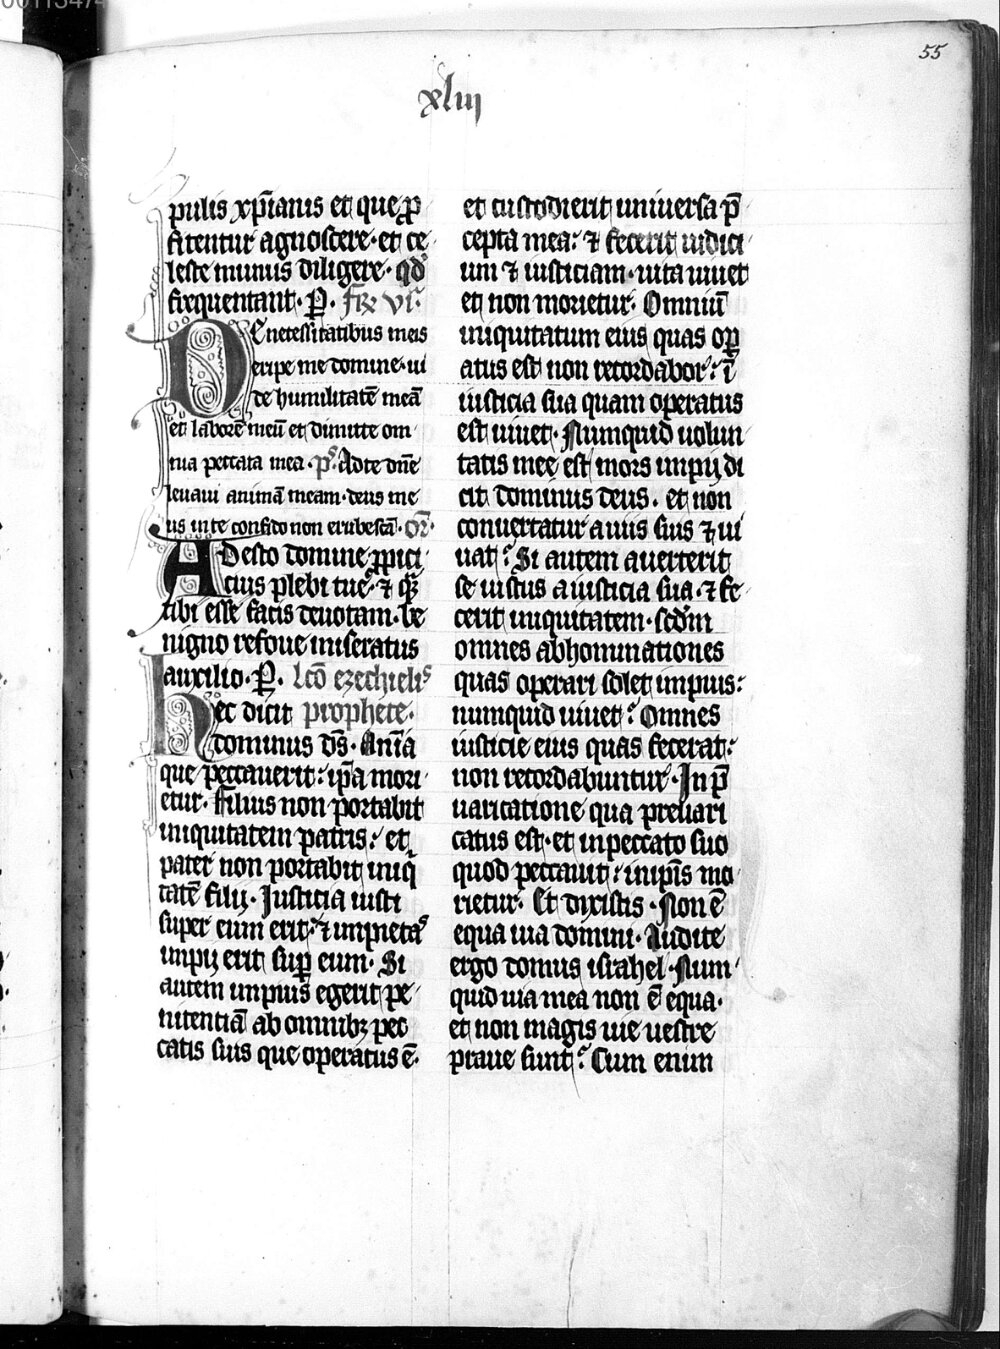 55
xliii
pulis xp̄ianis et que p̱ro
fitentur agnoscere · et ce
leste munus diligere · qd̄
frequentant · P̱ · Fr̄ vi ·
De necessitatibus meis
eripe me domine · ui
de humilitatē meā
et laborē meū et dimitte om
nia peccata mea · p̄s · Ad te dn̄e
leuaui animā meam · deus me
us in te confido non erubescā · Or̄ ·
Adesto domine p̱pici
cius plebi tue · ⁊ q̄
tibi esse facis deuotam · be
nigno refoue miseratus
auxilio · P̱ · Lc̄o ezechielis
Hec dicit prophete ·
dominus dn̄s · Anīa
que peccauerit : ip̄a mori
etur · Filius non portabit
iniquitatem patris : et
pater non portabit iniq̄
tatē filij · Iusticia iusti
super eum erit : ⁊ impietas
impij erit sup̱ eum · Si
autem impius egerit pe
nitentiā ab omnibꝫ pec
catis suis que operatus ē ·
et custodierit uniuersa p̄
cepta mea : ⁊ fecerit iudici
um ⁊ iusticiam · uita uiuet
et non morietur · Omniū
iniquitatum eius quas op̱
atus est non recordabor : ī
iusticia sua quam operatus
est uiuet · Numquid uolun
tatis mee est mors impij di
cit dominus deus · et non
conuertatur a uiis suis ⁊ ui
uat ? Si autem auerterit
se iustus a iusticia sua · ⁊ fe
cerit iniquitatem · scd̄m
omnes abhominationes
quas operari solet impius :
numquid uiuet ? Omnes
iusticie eius quas fecerat :
non recordabuntur · In p̄
uaricatione qua preuari
catus est · et in peccato suo
quod peccauit : in ip̄is mo
rietur · Et dixistis · Non ē
equa uia domini · Audite
ergo domus israhel · Num
quid uia mea non ē equa ·
et non magis uie uestre
praue sunt ? Cum enim